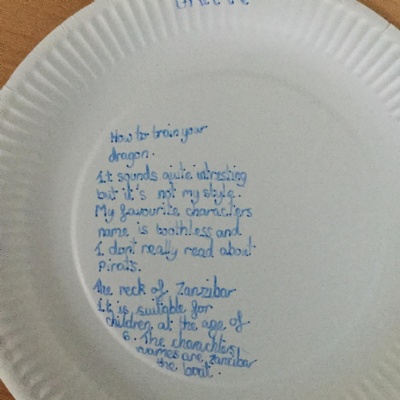 How to train your
dragon.
It sounds quite intresting
but it's not my style.
My favourite characters
name is toothless and
I don't really read about
Pirats.
The reck of Zanzibar
It is suitable for
children at the age of
6. The charachters
names are zanzibar
the boat.